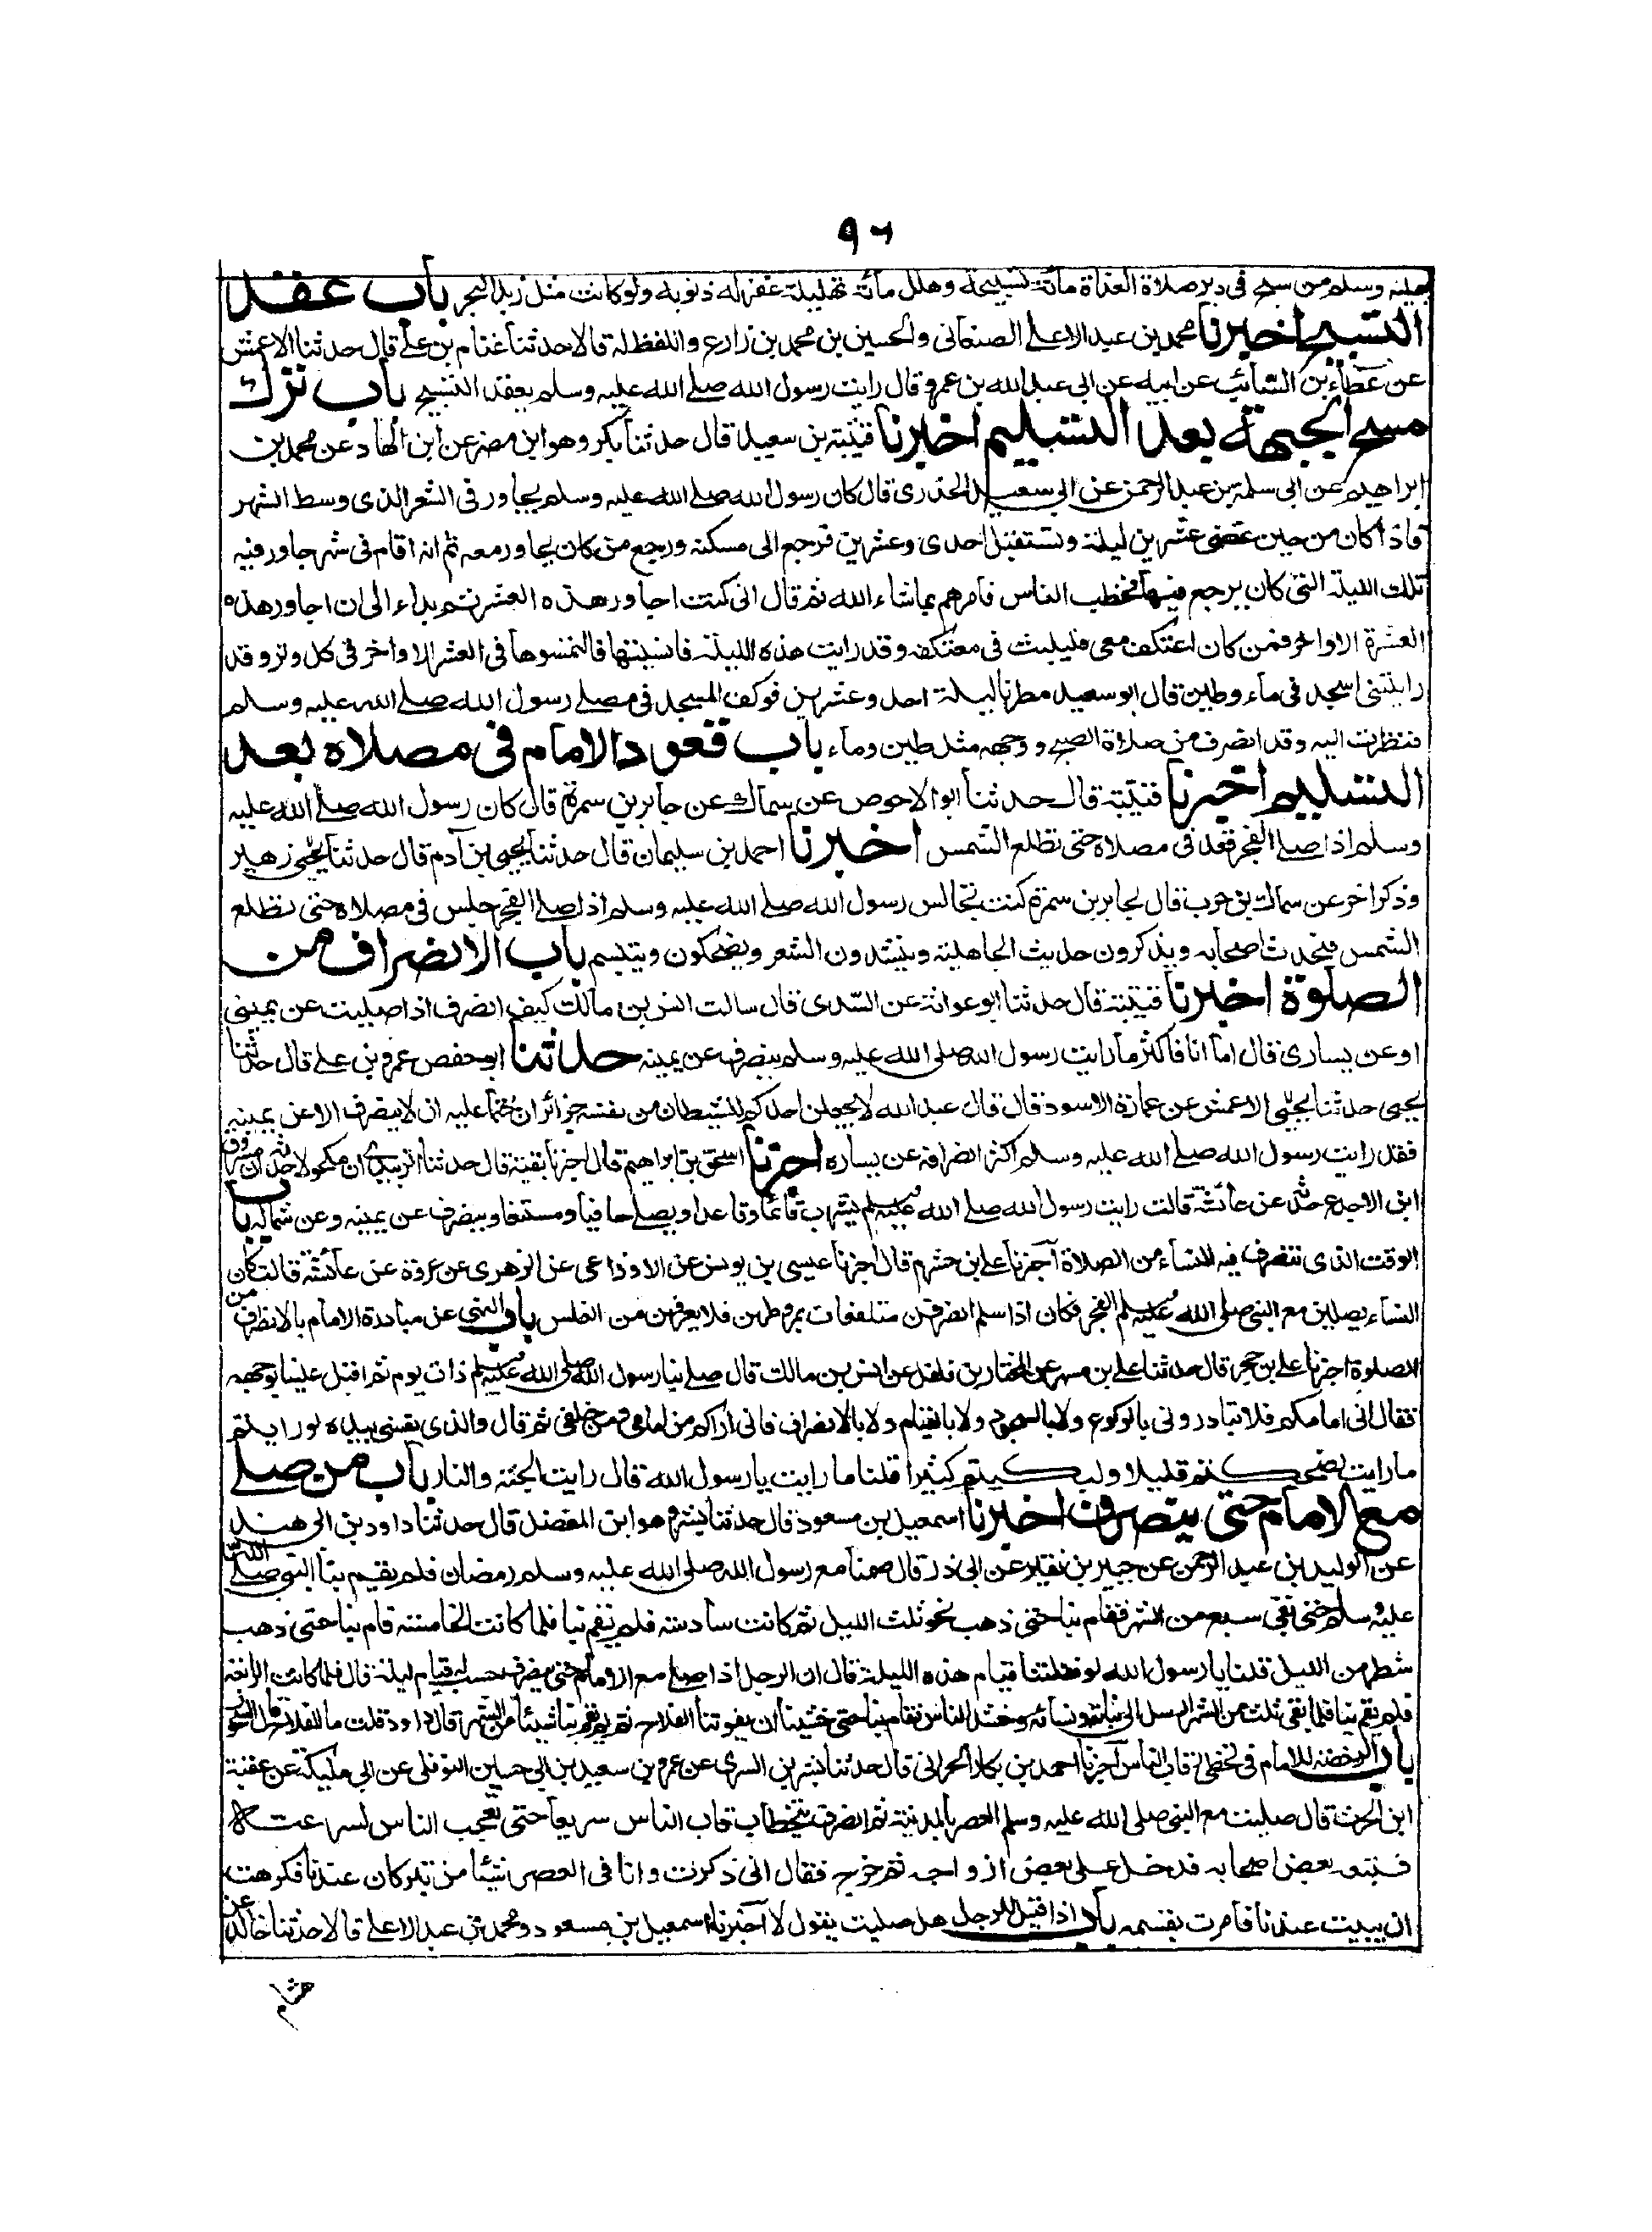 ٩٦
عليه وسلم من سبح فى دبر صلاة الغداة مائة تسبيحة وهلل مائة تهليلة غفر له ذنوبه ولو كانت مثل زبد البحر باب عقد
التسبيح اخبرنا محمد بن عبد الاعلى الصنعانى والحسين بن محمد بن زارع واللفظ له قالا حدثنا غنام بن على قال حدثنا الاعمش
عن عطاء بن السائب عن ابيه عن ابى عبد الله بن عمرو قال رايت رسول الله صلى الله عليه وسلم يعقد التسبيح باب ترك
مسح الجبهة بعد التسليم اخبرنا قتيبة بن سعيد قال حدثنا بكر وهو ابن مضر عن ابن الهاد عن محمد بن
ابراهيم عن ابى سلمة بن عبد الرحمن عن ابى سعيد الخدرى قال كان رسول الله صلى الله عليه وسلم يجاور فى الشعر الذى وسط الشهر
فاذا كان من حين عضى عشرين ليلة وتستقبل احدى وعشرين فرجع الى مسكنه ورجع من كان يجاور معه ثم انه اقام فى شهر جاور فيه
تلك الليلة التى كان يرجع فيها فخطب الناس فامرهم بما شاء الله ثم قال انى كنت اجاور هذه العشر ثم بداء الى ان اجاور هذه
العشرة الاواخر فمن كان اعتكف معى فليلبث فى معتكفه وقد رايت هذه الليلة فانسيتها فالتمسوها فى العشر الاواخر فى كل وتر وقد
رايتنى اسجد فى ماء وطين قال ابو سعيد مطرنا ليلة احد وعشرين فوكف المسجد فى مصلى رسول الله صلى الله عليه وسلم
فنظرت اليه وقد انصرف من صلاة الصبح ووجهه مثل طين وماء باب قعود الامام فى مصلاه بعد
التسليم اخبرنا قتيبة قال حدثنا ابو الاحوص عن سماك عن جابر بن سمرة قال كان رسول الله صلى الله عليه
وسلم اذا صلى الفجر قعد فى مصلاه حتى تطلع الشمس اخبرنا احمد بن سليمان قال حدثنا يحيى بن آدم قال حدثنا يحيى زهير
وذكر اخر عن سماك بن حرب قال لجابر بن سمرة كنت تجالس رسول الله صلى الله عليه وسلم اذا صلى الفجر جلس فى مصلاه حتى تطلع
الشمس فيتحدث اصحابه ويذكرون حديث الجاهلية وينشدون الشعر ويضحكون ويتبسم باب الانصراف من
الصلوة اخبرنا قتيبة قال حدثنا ابو عوانة عن السدى قال سالت انس بن مالك كيف انصرف اذا صليت عن يمينى
او عن يسارى قال اما انا فاكثر ما رايت رسول الله صلى الله عليه وسلم ينصرف عن يمينه حدثنا ابو حفص عمرو بن على قال حدثنا
يحيى حدثنا يحيى الاعمش عن عمارة الاسود قال قال عبد الله لا يجعلن احدكم للشيطان من نفسه جزا يرى ان حتما عليه ان لا ينصرف الا عن يمينه
فقد رايت رسول الله صلى الله عليه وسلم اكثر انصرافه عن يساره اخبرنا اسحق بن ابراهيم قال اخبرنا بقية قال حدثنا الزبيدى ان مكحولا حدثه ان مسروق
ابن الاجدع حدثه عن عائشة قالت رايت رسول الله صلى الله عليه وسلم يشرب قائما وقاعدا ويصلى حافيا ومنتعلا وينصرف عن يمينه وعن شماله باب
الوقت الذى تنصرف فيه النساء من الصلاة اخبرنا على ابن خشرم قال اخبرنا عيسى بن يونس عن الاوزاعى عن الزهرى عن عروة عن عائشة قالت كان
النساء يصلين مع النبى صلى الله عليه وسلم الفجر فكان اذا سلم انصرفن متلفعات بمروطهن فلا يعرفن من الغلس باب النهى عن مبادرة الامام بالانصراف من
الصلوة اخبرنا على بن حجر قال حدثنا على بن مسهر عن المختار بن فلفل عن انس بن مالك قال صلى بنا رسول الله صلى الله عليه وسلم ذات يوم ثم اقبل علينا بوجهه
فقال انى امامكم فلا تبادرونى بالركوع ولا بالسجود ولا بالقيام ولا بالانصراف فانى اراكم من امامى ومن خلفى ثم قال والذى نفسى بيده لو رايتم
ما رايت لضحكتم قليلا ولبكيتم كثيرا قلنا ما رايت يا رسول الله قال رايت الجنة والنار باب من صلى
مع الامام حتى ينصرف اخبرنا اسمعيل بن مسعود قال حدثنا بشر وهو ابن المفضل قال حدثنا داود بن ابى هند
عن الوليد بن عبد الرحمن عن جبير بن نفير عن ابى ذر قال صمنا مع رسول الله صلى الله عليه وسلم رمضان فلم يقيم بنا النبى صلى الله
عليه وسلم حتى بقى سبع من الشهر فقام بنا حتى ذهب نحو ثلث الليل ثم كانت سادسة فلم يقم بنا فلما كانت الخامسة قام بنا حتى ذهب
شطر من الليل قلنا يا رسول الله لو نفلتنا قيام هذه الليلة قال ان الرجل اذا صلى مع الامام حتى ينصرف حسب له قيام ليلة قال فلما كانت الرابعة
فلم يقم بنا فلما بقى ثلث من الشهر ارسل الى بناته ونسائه وحشد الناس فقام بنا حتى خشينا ان يفوتنا الفلاح ثم لم يقم بنا شيئا من الشهر قال داود قلت ما الفلاح قال السحور
باب الرخصة للامام فى تخطى رقاب الناس اخبرنا احمد بن بكار الحرانى قال حدثنا بشر بن السرى عن عمرو بن سعيد بن ابى حسين النوفلى عن ابى مليكة عن عقبة
ابن الحرث قال صليت مع النبى صلى الله عليه وسلم العصر بالمدينة ثم انصرف يتخطا رقاب الناس سريعا حتى تعجب الناس لسرعته
فتبعه بعض اصحابه فدخل على بعض ازواجه ثم خرج فقال انى ذكرت وانا فى العصر شيئا من تبر كان عندنا فكرهت
ان يبيت عندنا فامرت بقسمه باب اذا قيل للرجل هل صليت يقول لا اخبرنا اسمعيل بن مسعود ومحمد بن عبد الاعلى قالا حدثنا خالد عن
هشام